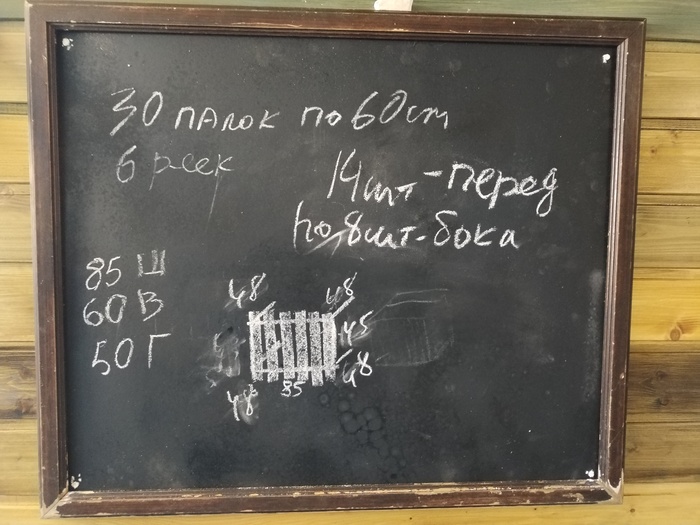 30 палок по 60cm
6 реек
14шт-перед
по 8шт-бока
85 Ш
60 В
50 Г
48 48
45
48
48 85